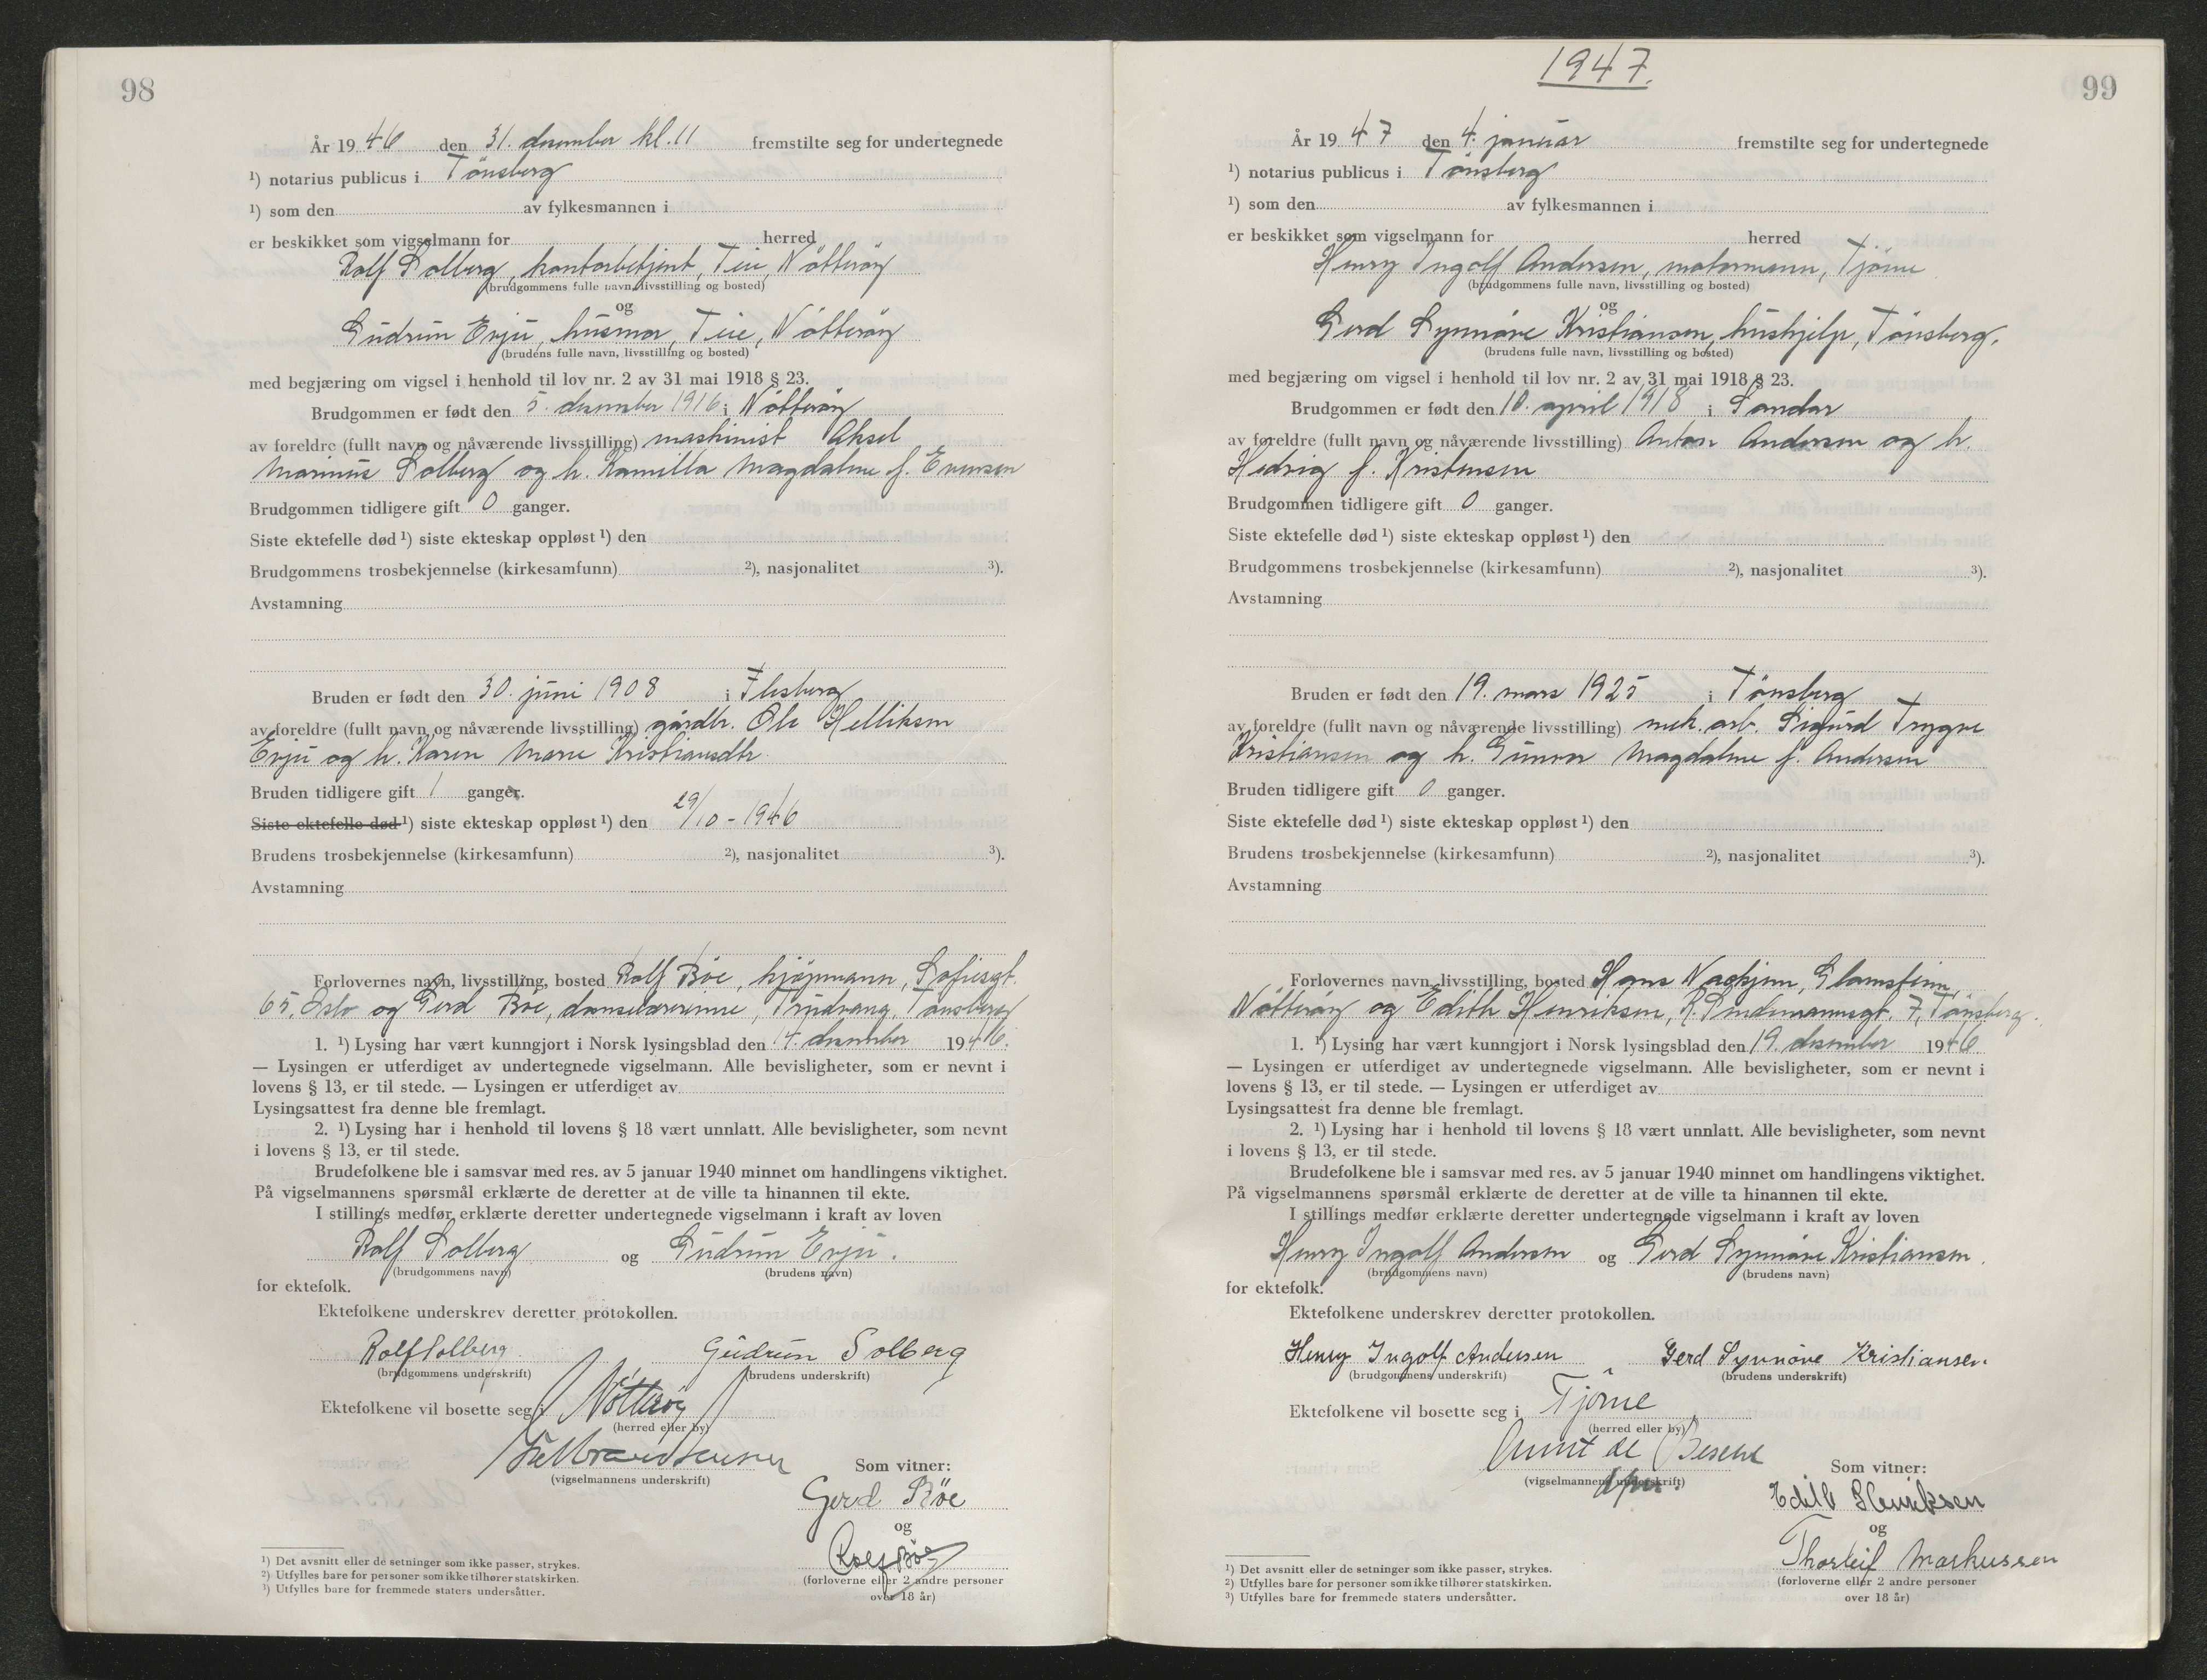 98
År 1946 den 31. desember kl. 11 fremstilte seg for undertegnede
¹) notarius publicus i Tönsberg
¹) som den av fylkesmannen i
er beskikket som vigselmann for herred
Rolf Solberg, kontorbetjent, Teie, Nötteröy
(brudgommens fulle navn, livsstilling og bosted)
og
Gudrun Evju, husmor, Teie, Nötteröy
(brudens fulle navn, livsstilling og bosted)
med begjæring om vigsel i henhold til lov nr. 2 av 31 mai 1918 § 23.
Brudgommen er født den 5. desember 1916 i Nötteröy
av foreldre (fullt navn og nåværende livsstilling) maskinist Aksel
Marinus Solberg og h. Kamilla Magdalene f. Evensen
Brudgommen tidligere gift 0 ganger.
Siste ektefelle død ¹) siste ekteskap oppløst ¹) den
Brudgommens trosbekjennelse (kirkesamfunn) ²), nasjonalitet ³).
Avstamning
Bruden er født den 30. juni 1908 i Flesberg
av foreldre (fullt navn og nåværende livsstilling) gårdbr. Ole Helliksen
Evju og h. Karen Marie Kristiansdtr.
Bruden tidligere gift 1 ganger.
Siste ektefelle død ¹) siste ekteskap oppløst ¹) den 29/10 - 1946
Brudens trosbekjennelse (kirkesamfunn) ²), nasjonalitet ³).
Avstamning
Forlovernes navn, livsstilling, bosted Rolf Böe, kjöpmann, Sofiesgt.
65, Oslo og Gerd Böe, danselærerinne, Trudvang, Tönsberg
1. ¹) Lysing har vært kunngjort i Norsk lysingsblad den 14. desember 1946.
— Lysingen er utferdiget av undertegnede vigselmann. Alle bevisligheter, som er nevnt i
lovens § 13, er til stede. — Lysingen er utferdiget av
Lysingsattest fra denne ble fremlagt.
2. ¹) Lysing har i henhold til lovens § 18 vært unnlatt. Alle bevisligheter, som nevnt
i lovens § 13, er til stede.
Brudefolkene ble i samsvar med res. av 5 januar 1940 minnet om handlingens viktighet.
På vigselmannens spørsmål erklærte de deretter at de ville ta hinannen til ekte.
I stillings medfør erklærte deretter undertegnede vigselmann i kraft av loven
Rolf Solberg og Gudrun Evju.
(brudgommens navn) (brudens navn)
for ektefolk.
Ektefolkene underskrev deretter protokollen.
Rolf Solberg Gudrun Solberg
(brudgommens underskrift) (brudens underskrift)
Ektefolkene vil bosette seg i Nötteröy
(herred eller by)
(vigselmannens underskrift)
Som vitner:
Gerd Böe
og
Rolf Böe
(forloverne eller 2 andre personer
over 18 år)
¹) Det avsnitt eller de setninger som ikke passer, strykes.
²) Utfylles bare for personer som ikke tilhører statskirken.
³) Utfylles bare for fremmede staters undersåtter.
1947.
99
År 1947 den 4. januar fremstilte seg for undertegnede
¹) notarius publicus i Tönsberg
¹) som den av fylkesmannen i
er beskikket som vigselmann for herred
Henry Ingolf Andersen, motormann, Tjöme
(brudgommens fulle navn, livsstilling og bosted)
og
Gerd Synnöve Kristiansen, hushjelp, Tönsberg.
(brudens fulle navn, livsstilling og bosted)
med begjæring om vigsel i henhold til lov nr. 2 av 31 mai 1918 § 23.
Brudgommen er født den 10. april 1918 i Sandar
av foreldre (fullt navn og nåværende livsstilling) Anton Andersen og h.
Hedvig f. Kristensen
Brudgommen tidligere gift 0 ganger.
Siste ektefelle død ¹) siste ekteskap oppløst ¹) den
Brudgommens trosbekjennelse (kirkesamfunn) ²), nasjonalitet ³).
Avstamning
Bruden er født den 19. mars 1925 i Tönsberg
av foreldre (fullt navn og nåværende livsstilling) mek. arb. Sigurd Trygve
Kristiansen og h. Gunvor Magdalene f. Andersen
Bruden tidligere gift 0 ganger.
Siste ektefelle død ¹) siste ekteskap oppløst ¹) den
Brudens trosbekjennelse (kirkesamfunn) ²), nasjonalitet ³).
Avstamning
Forlovernes navn, livsstilling, bosted Hans Nackjem, Glomstein,
Nötteröy og Edith Henriksen, R. Lindemannsgt. 7, Tönsberg.
1. ¹) Lysing har vært kunngjort i Norsk lysingsblad den 19. desember 1946
— Lysingen er utferdiget av undertegnede vigselmann. Alle bevisligheter, som er nevnt i
lovens § 13, er til stede. — Lysingen er utferdiget av
Lysingsattest fra denne ble fremlagt.
2. ¹) Lysing har i henhold til lovens § 18 vært unnlatt. Alle bevisligheter, som nevnt
i lovens § 13, er til stede.
Brudefolkene ble i samsvar med res. av 5 januar 1940 minnet om handlingens viktighet.
På vigselmannens spørsmål erklærte de deretter at de ville ta hinannen til ekte.
I stillings medfør erklærte deretter undertegnede vigselmann i kraft av loven
Henry Ingolf Andersen og Gerd Synnöve Kristiansen.
(brudgommens navn) (brudens navn)
for ektefolk.
Ektefolkene underskrev deretter protokollen.
Henry Ingolf Andersen Gerd Synnöve Kristiansen.
(brudgommens underskrift) (brudens underskrift)
Ektefolkene vil bosette seg i Tjöme
(herred eller by)
de Besche
(vigselmannens underskrift)
Som vitner:
Edith Henriksen
og
Thorleif Markussen
(forloverne eller 2 andre personer
over 18 år)
¹) Det avsnitt eller de setninger som ikke passer, strykes.
²) Utfylles bare for personer som ikke tilhører statskirken.
³) Utfylles bare for fremmede staters undersåtter.